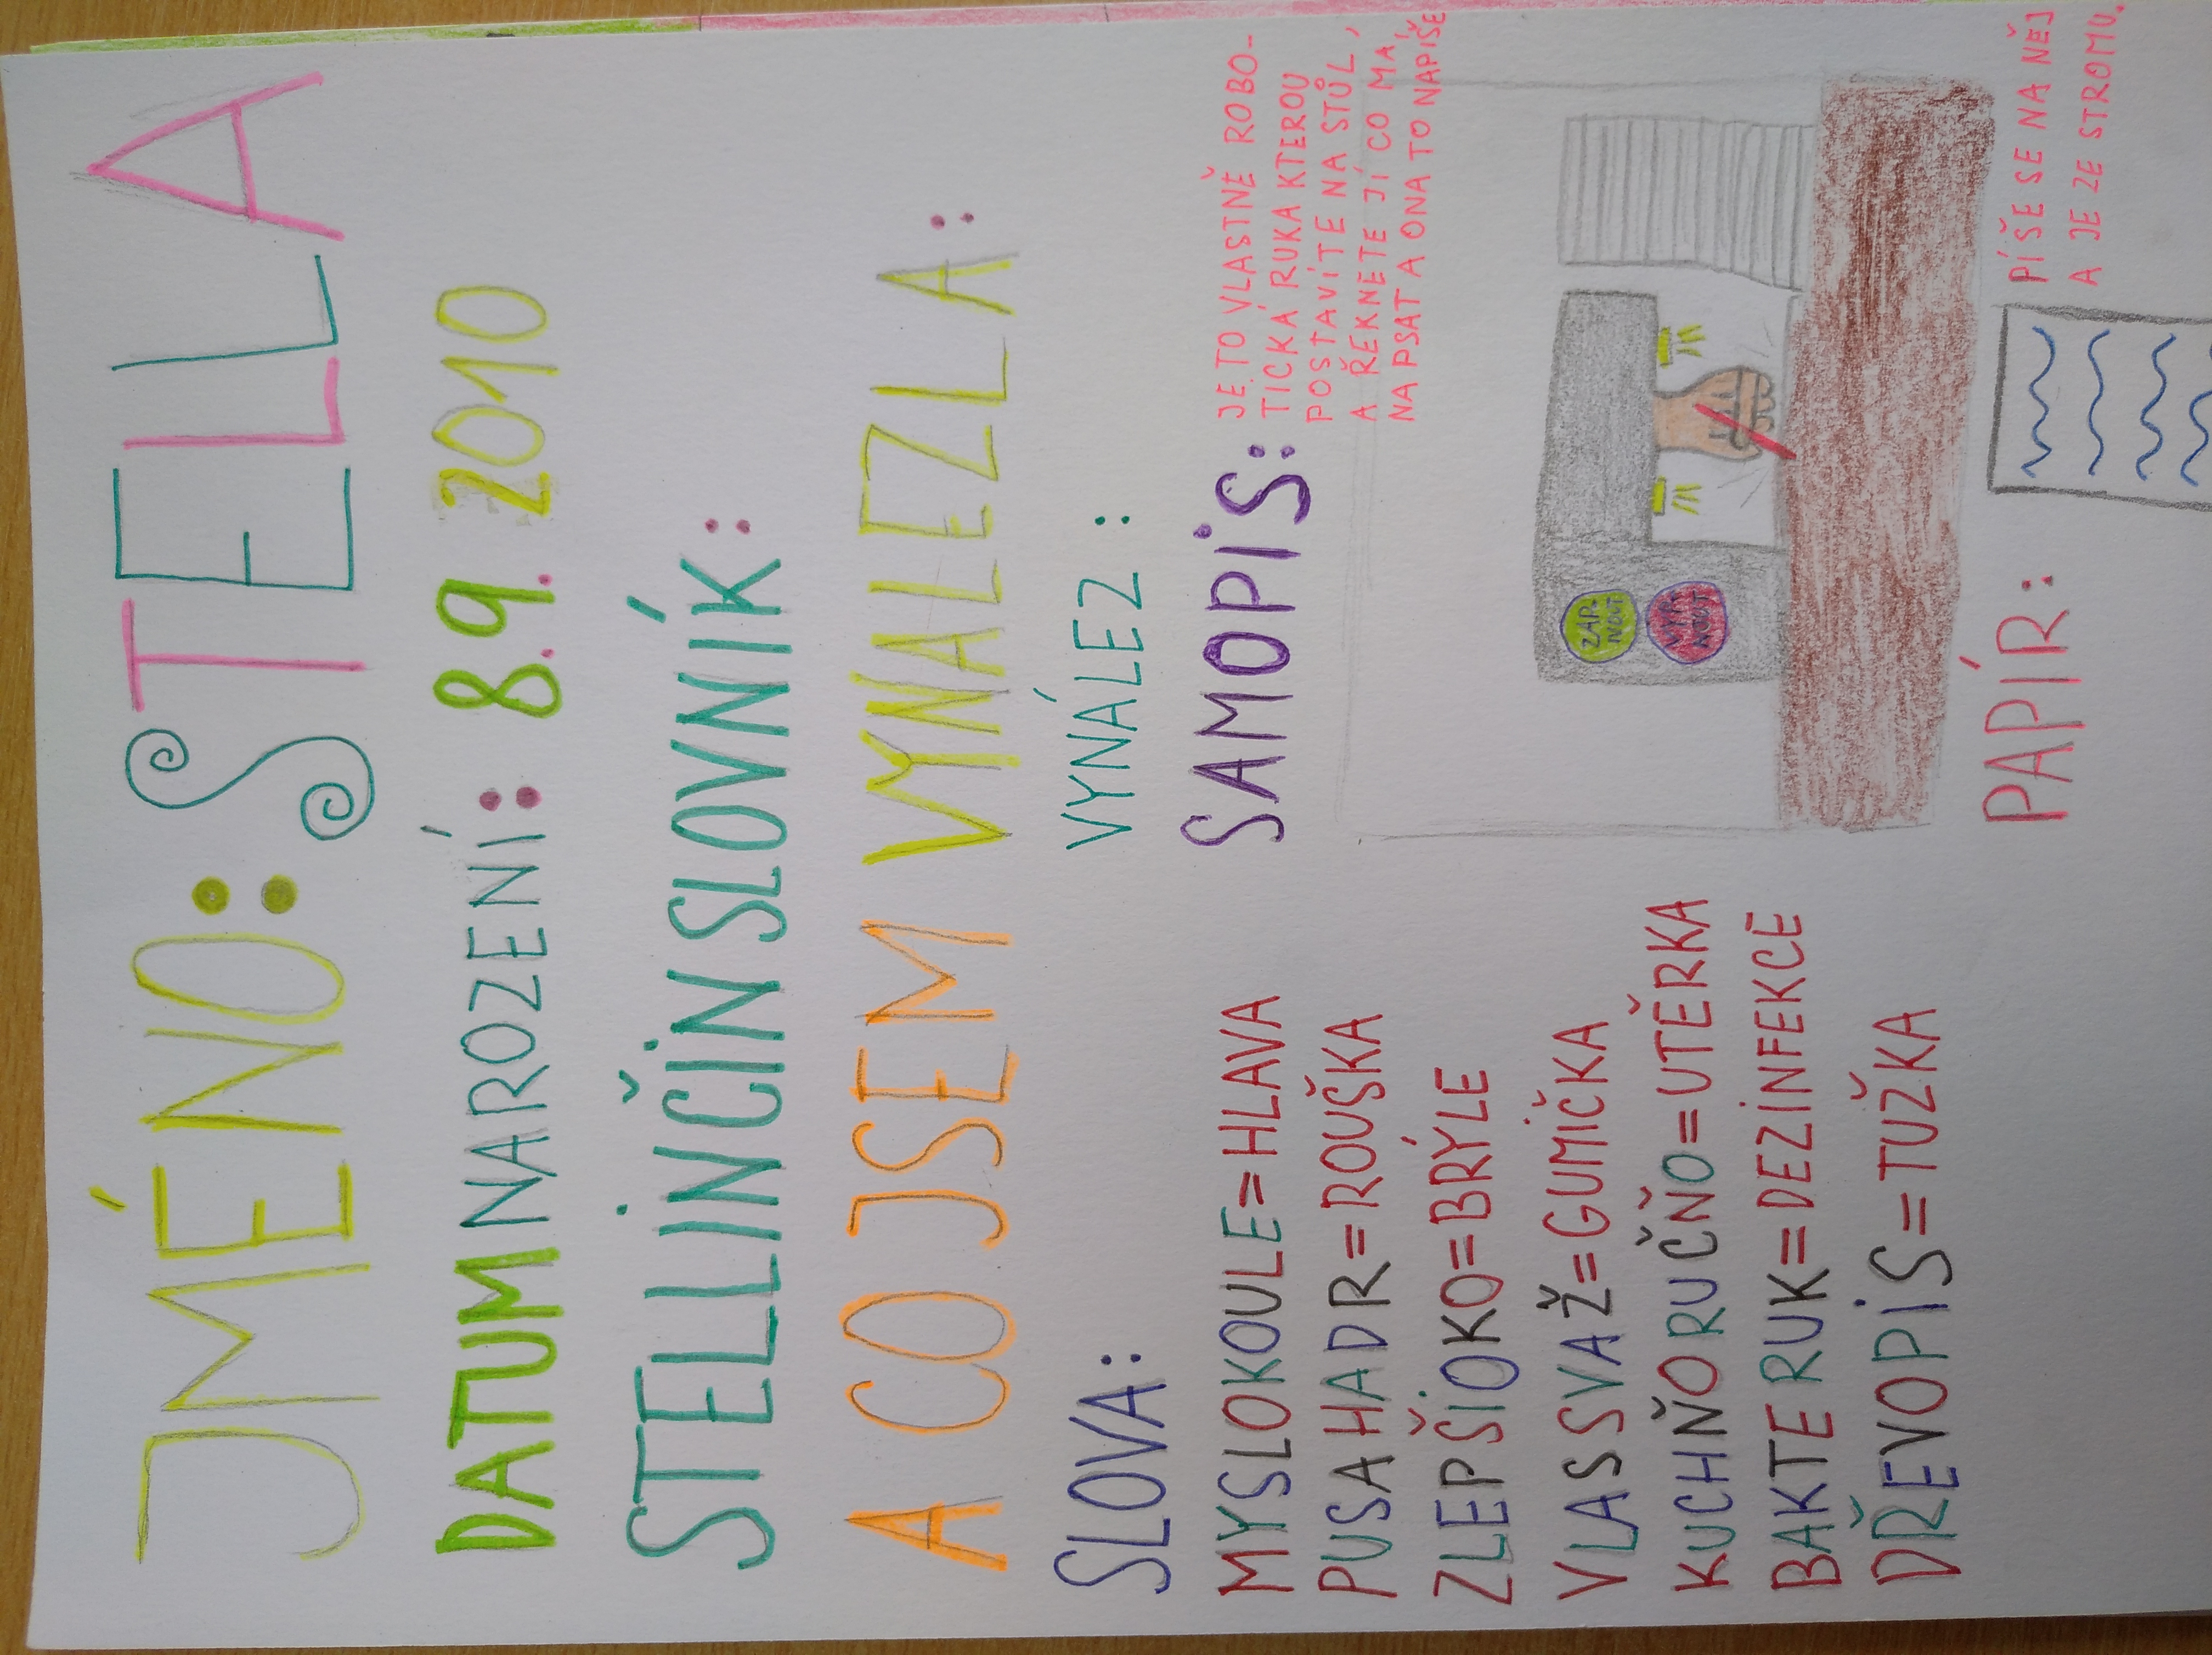 JMÉNO: STELLA
DATUM NAROZENÍ: 8.9. 2010
STELLINČIN SLOVNÍK:
A CO JSEM VYNALEZLA:
SLOVA:
MYSLOKOULE=HLAVA
PUSAHADR=ROUŠKA
ZLEPŠIOKO=BRÝLE
VLASSVAŽ=GUMIČKA
KUCHŇORUČŇO=UTĚRKA
BAKTERUK=DEZINFEKCE
DŘEVOPIS=TUŽKA
VYNÁLEZ:
SAMOPIS:
JE TO VLASTNĚ ROBO-
TICKÁ RUKA KTEROU
POSTAVÍTE NA STŮL,
A ŘEKNETE JÍ CO MÁ,
NAPSAT A ONA TO NAPÍŠE
ZAP.
NOUT
VYP.
NOUT
PAPÍR:
PÍŠE SE NA NĚJ
A JE ZE STROMU.